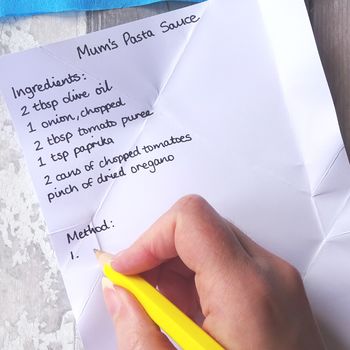 Mum's Pasta Sauce
Ingredients:
2 tbsp olive oil
1 onion, chopped
2 tbsp tomato puree
1 tsp paprika
2 cans of chopped tomatoes
pinch of dried oregano
Method:
1.